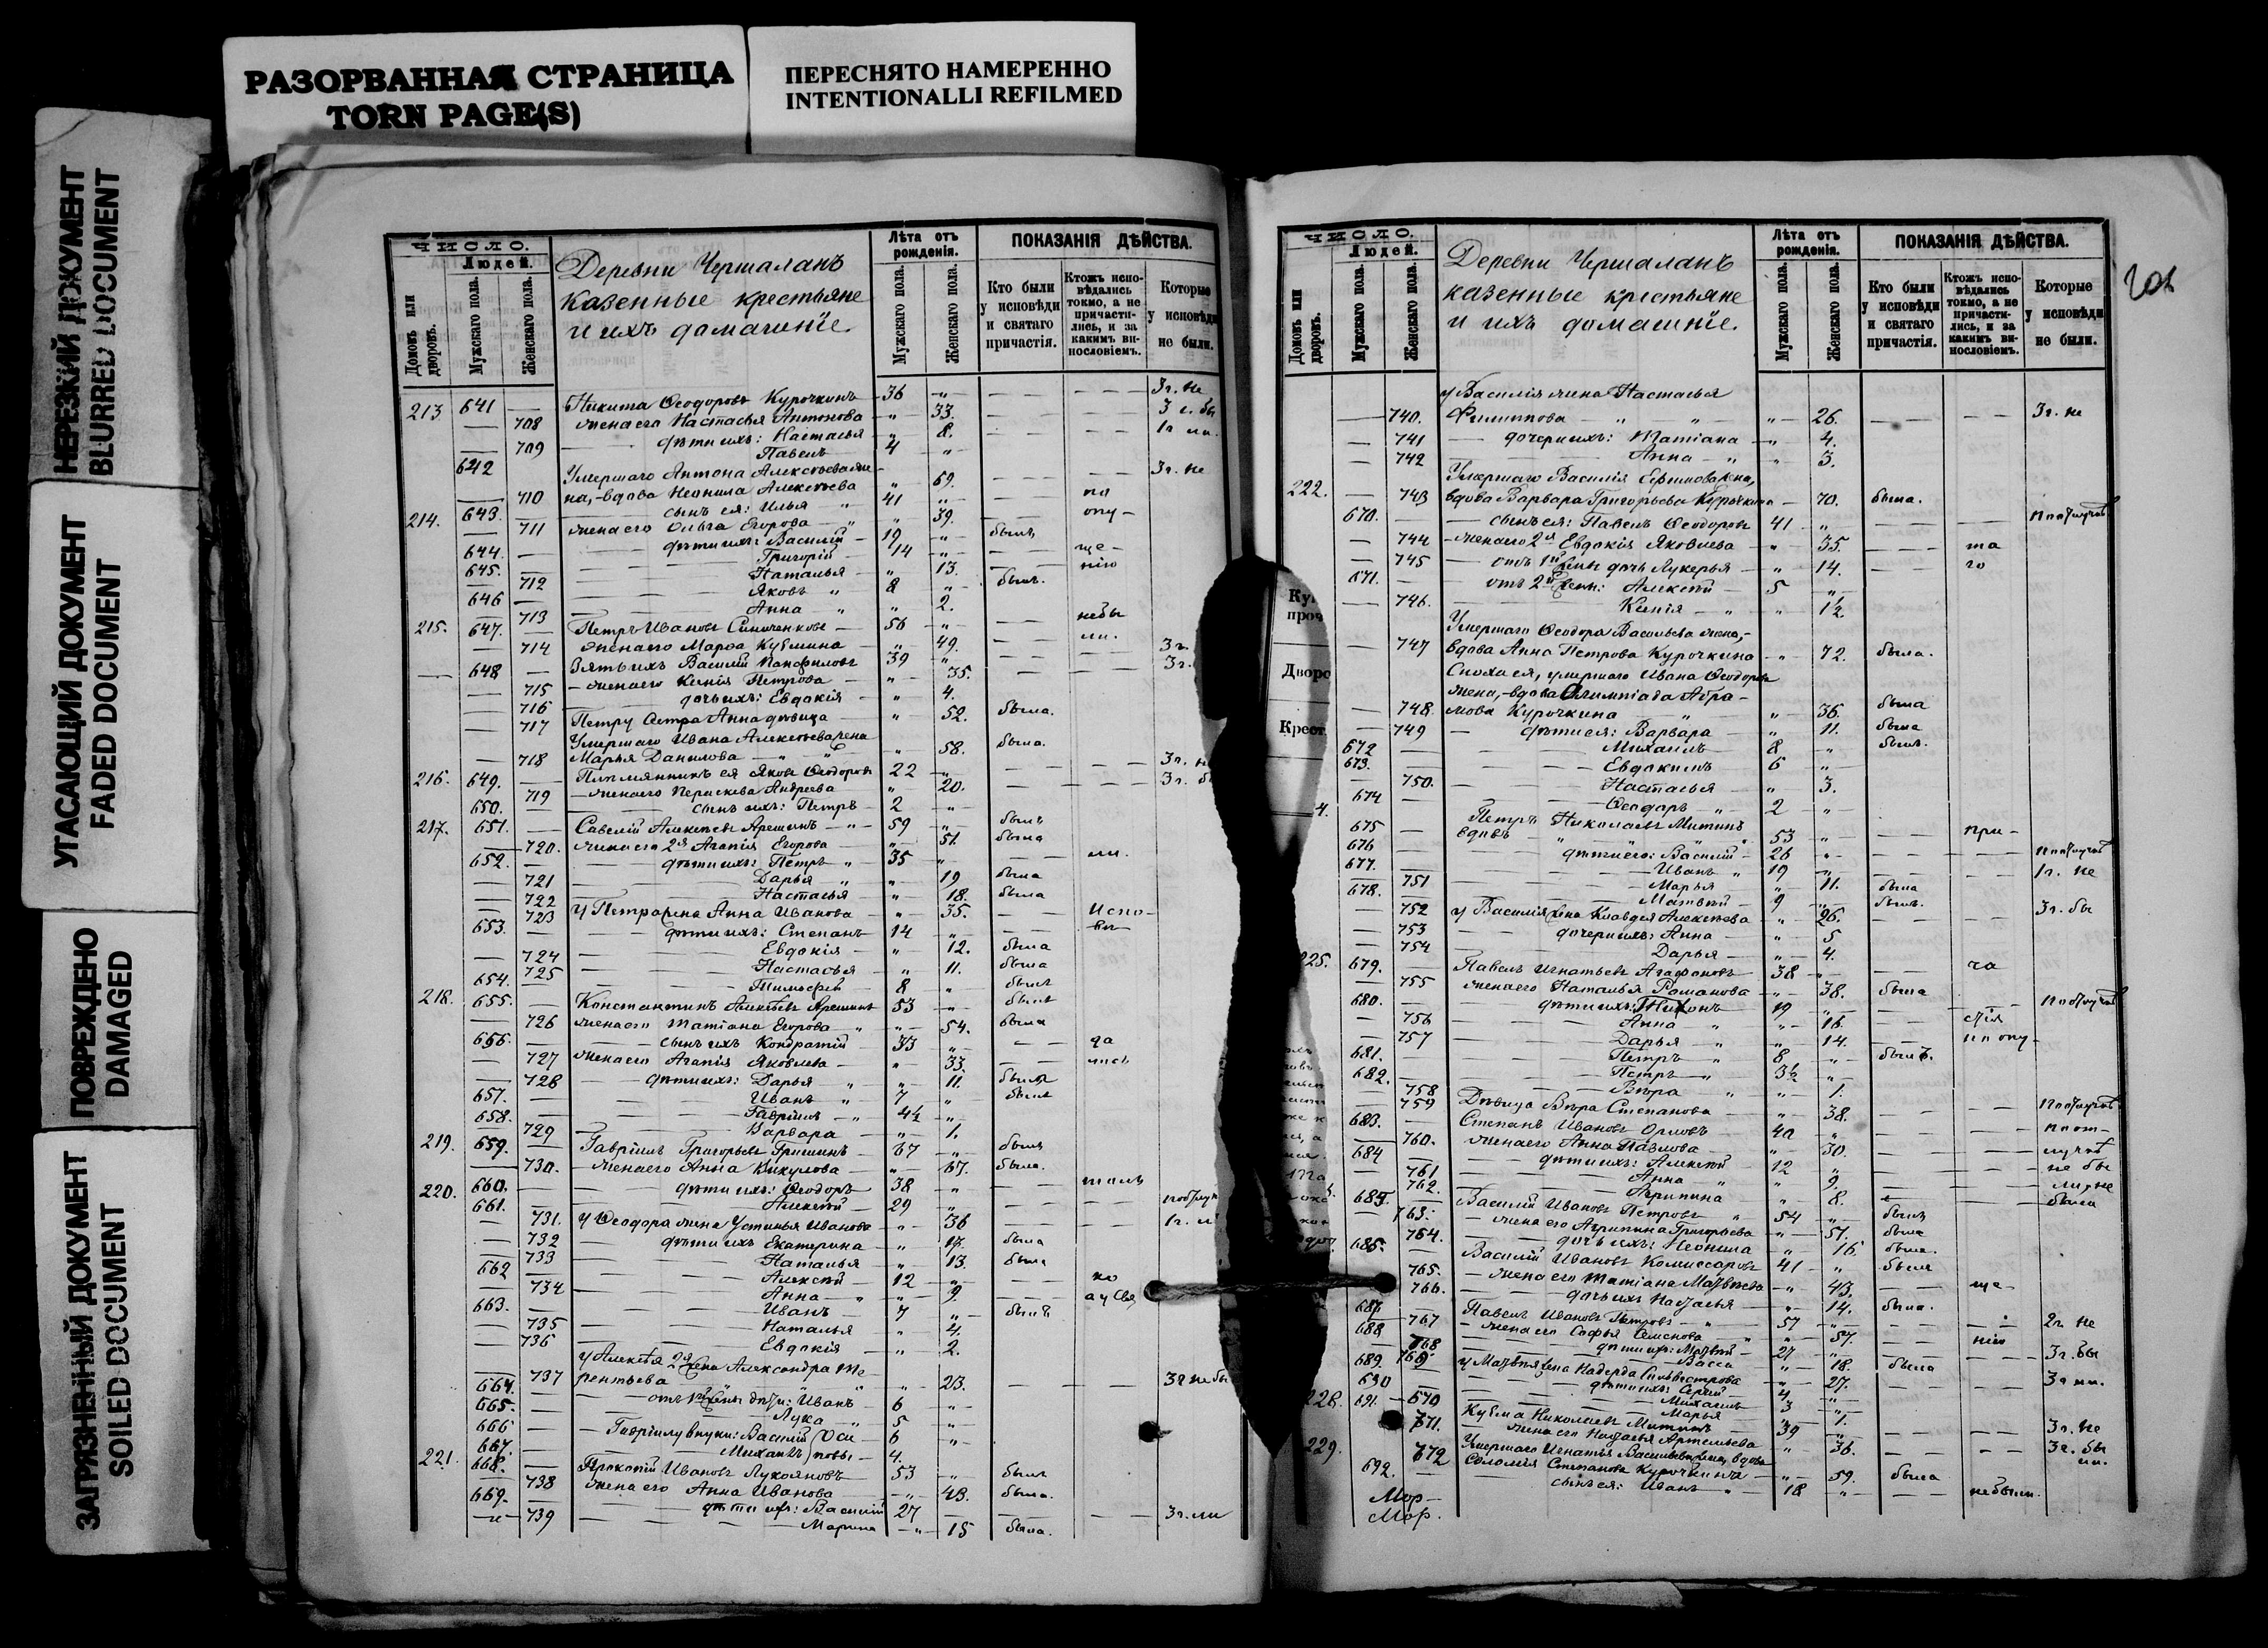 РАЗОРВАННАЯ СТРАНИЦА
TORN PAGE(S)
ПЕРЕСНЯТО НАМЕРЕННО
INTENTIONALLI REFILMED
НЕРЕЗКИЙ ДОКУМЕНТ
BLURRED DOCUMENT
УГАСАЮЩИЙ ДОКУМЕНТ
FADED DOCUMENT
ПОВРЕЖДЕНО
DAMAGED
ЗАГРЯЗНЕННЫЙ ДОКУМЕНТ
SOILED DOCUMENT
ЧИСЛО.
Людей.
Домовъ или дворовъ.
Мужскаго пола.
Женскаго пола.
Деревни Чершаланъ
казенные крестьяне
и ихъ домашніе.
Лѣта отъ рожденія.
Мужскаго пола.
Женскаго пола.
ПОКАЗАНІЯ ДѢЙСТВА.
Кто были у исповѣди и святаго причастія.
Ктожъ исповѣдались токмо, а не причастились, и за какимъ винословіемъ.
Которые у исповѣди не были.
213 641 — Никита Ѳеодоровъ Курочкинъ 36 3 г. не
708 жена его Настасья Антонова 33. 3 г. бы
709 дѣти ихъ: Настасья 8. 1 г ли.
642 Павелъ 4
Умершаго Антона Алексѣева же-
710 на,-вдова Неонила Алексѣева 69. 3 г. не
214. 643. сынъ ея: Илья 41 по
711 жена его Ольга Егорова 39. опу-
644. дѣти ихъ: Василій 19 былъ
645. Григорій 14 ще-
712 Наталья 13. нію
646 Яковъ 8 былъ.
713 Анна 2.
215. 647. Петръ Ивановъ 56 небы
714 жена его Марѳа Кузмина 49. ли.
648 Зять ихъ Василій Панфиловъ 39 3 г.
715 жена его Ксенія Петрова 35. 3 г.
716 дочь ихъ: Евдокія 4.
717 Петру сестра Анна дѣвица 52. была.
Умершаго Ивана Алексѣева жена
718 Марья Данилова 58. была.
216. 649. Племянникъ ея Яковъ Ѳеодоровъ 22 3 г. не
719 жена его Параскева Андреева 20. 3 г. бы
650. сынъ ихъ: Петръ 2
217. 651. Савелій Алексѣевъ Арешинъ 59 былъ
720. жена его 2я Агапія Егорова 51. была
652. дѣти ихъ: Петръ 35 ли.
721 Дарья 19 была
722 Настасья 18. была
723 у Петра жена Анна Иванова 35. Испо-
653. дѣти ихъ: Степанъ 14
724 Евдокія 12. была
725 Настасья 11. была
654. Тимоѳей 8 былъ
218. 655. Константинъ Алексѣевъ Арешинъ 53 былъ
726 жена его Татіана Егорова 54. была
656. сынъ ихъ Кондратій 33 да
727 жена его Агапія Яковлева 33. лись
728 дѣти ихъ: Дарья 11. была
657. Иванъ 7 былъ
658. Гавріилъ 4½
729 Варвара 1.
219. 659. Гавріилъ Григорьевъ Гришинъ 67 былъ
730. жена его Анна Викулова 67. была.
220. 660. дѣти ихъ: Ѳеодоръ 38 толь
661. Алексѣй 29
731. у Ѳеодора жена Устинья Иванова 36
732 дѣти ихъ Екатерина была
733 Наталья 13. была
662 Алексѣй 12 ко
734 Анна 9.
663. Иванъ 7 былъ
735 Наталья 4.
736 Евдокія 2.
у Алексѣя 2я жена Александра Те-
737 рентьева 23. 3 г не бы
664. отъ 1й жены дѣти: Иванъ 6
665. Лука 5
666 Гавріилу внуки: Василій 6
667. Михаилъ 4.
221. 668. Прокопій Ивановъ Лукояновъ 53 былъ
738 жена его Анна Иванова 48. была.
669. дѣти ихъ: Василій 27 3 г. ли
739 Марина 15 была.
201
ЧИСЛО.
Людей.
Домовъ или дворовъ.
Мужскаго пола.
Женскаго пола.
Деревни Чершаланъ
казенные крестьяне
и ихъ домашніе.
Лѣта отъ рожденія.
Мужскаго пола.
Женскаго пола.
ПОКАЗАНІЯ ДѢЙСТВА.
Кто были у исповѣди и святаго причастія.
Ктожъ исповѣдались токмо, а не причастились, и за какимъ винословіемъ.
Которые у исповѣди не были.
у Василія жена Настасья
740. Филиппова 26. 3 г. не
741 дочери ихъ: Татіана 4.
742 Анна 3.
Умершаго Василія Ефимова жена,
222. 743 вдова Варвара Григорьева Курочкина 70. была.
670. сынъ ея: Павелъ Ѳеодоровъ 41
744 жена его 2я Евдокія Яковлева 35. та
745 отъ 1й жены дочь Лукерья 14. го
671. отъ 2й жены: Алексѣй 5
746. Ксенія 1½
Умершаго Ѳеодора Васильева жена,-
747 вдова Анна Петрова Курочкина 72. была.
Сноха ея, умершаго Ивана Ѳеодорова
жена,-вдова Олимпіада Абра-
748. мова Курочкина 36. была
749 дѣти ея: Варвара 11. была
672 Михаилъ 8 былъ.
673. Евдокимъ 6
750. Настасья 3.
674 Ѳеодоръ 2
Петръ Николаевъ Митинъ
675 вдовъ 53 при-
676 дѣти его: Василій 26
677. Иванъ 19 1 г. не
751 Марья 11. была
678. Матвѣй 9 былъ.
752 у Василія жена Клавдія Алексѣева 26. 3 г. бы
753 дочери ихъ: Анна 5
754 Дарья 4.
225. 679. Павелъ Игнатьевъ Агафоновъ 38 ча
755 жена его Наталья Романова 38. была
680. дѣти ихъ: Тихонъ 19
756 Анна 16. стія
757 Дарья 14. по опу-
681. Петръ 8 былъ.
682. Петръ 3½
758 Вѣра 1.
759 Дѣвица Вѣра Степанова 38.
683. Степанъ Ивановъ Орловъ 40 по от-
760. жена его Анна Павлова 30. лучкѣ
684 дѣти ихъ: Алексѣй 12 не бы
761 Анна 9
762. Агрипина 8. была
685. Василій Ивановъ Петровъ 54 былъ
763. жена его Агрипина Григорьева 51. была
764. дочь ихъ: Неонила 16. была.
686. Василій Ивановъ Комиссаровъ 41 былъ
765. жена его Татіана Матвѣева 43. ще-
766. дочь ихъ Настасья 14. была.
687 Павелъ Ивановъ Петровъ 57 2 г. не
767 жена его Софья Семенова 57. нію
688 дѣти ихъ: Матвѣй 27 3 г. бы
768 Васса 18. была
769 у Матвѣя жена Надежда Сильвестрова 27. 3 г ли.
689. дѣти ихъ: Сергѣй 4
690 Михаилъ 3
670 Марья 1.
228. 691. Кузма Николаевъ Митинъ 39 3 г. не
671. жена его Настасья Артемьева 36. 3 г. бы
Умершаго Игнатія Васильева жена, вдова ли.
229. 672 Соломія Степанова Курочкина 59. была
692. сынъ ея: Иванъ 18 не были.
Мор
Мор.
Ку
проч
Дворо
Крест